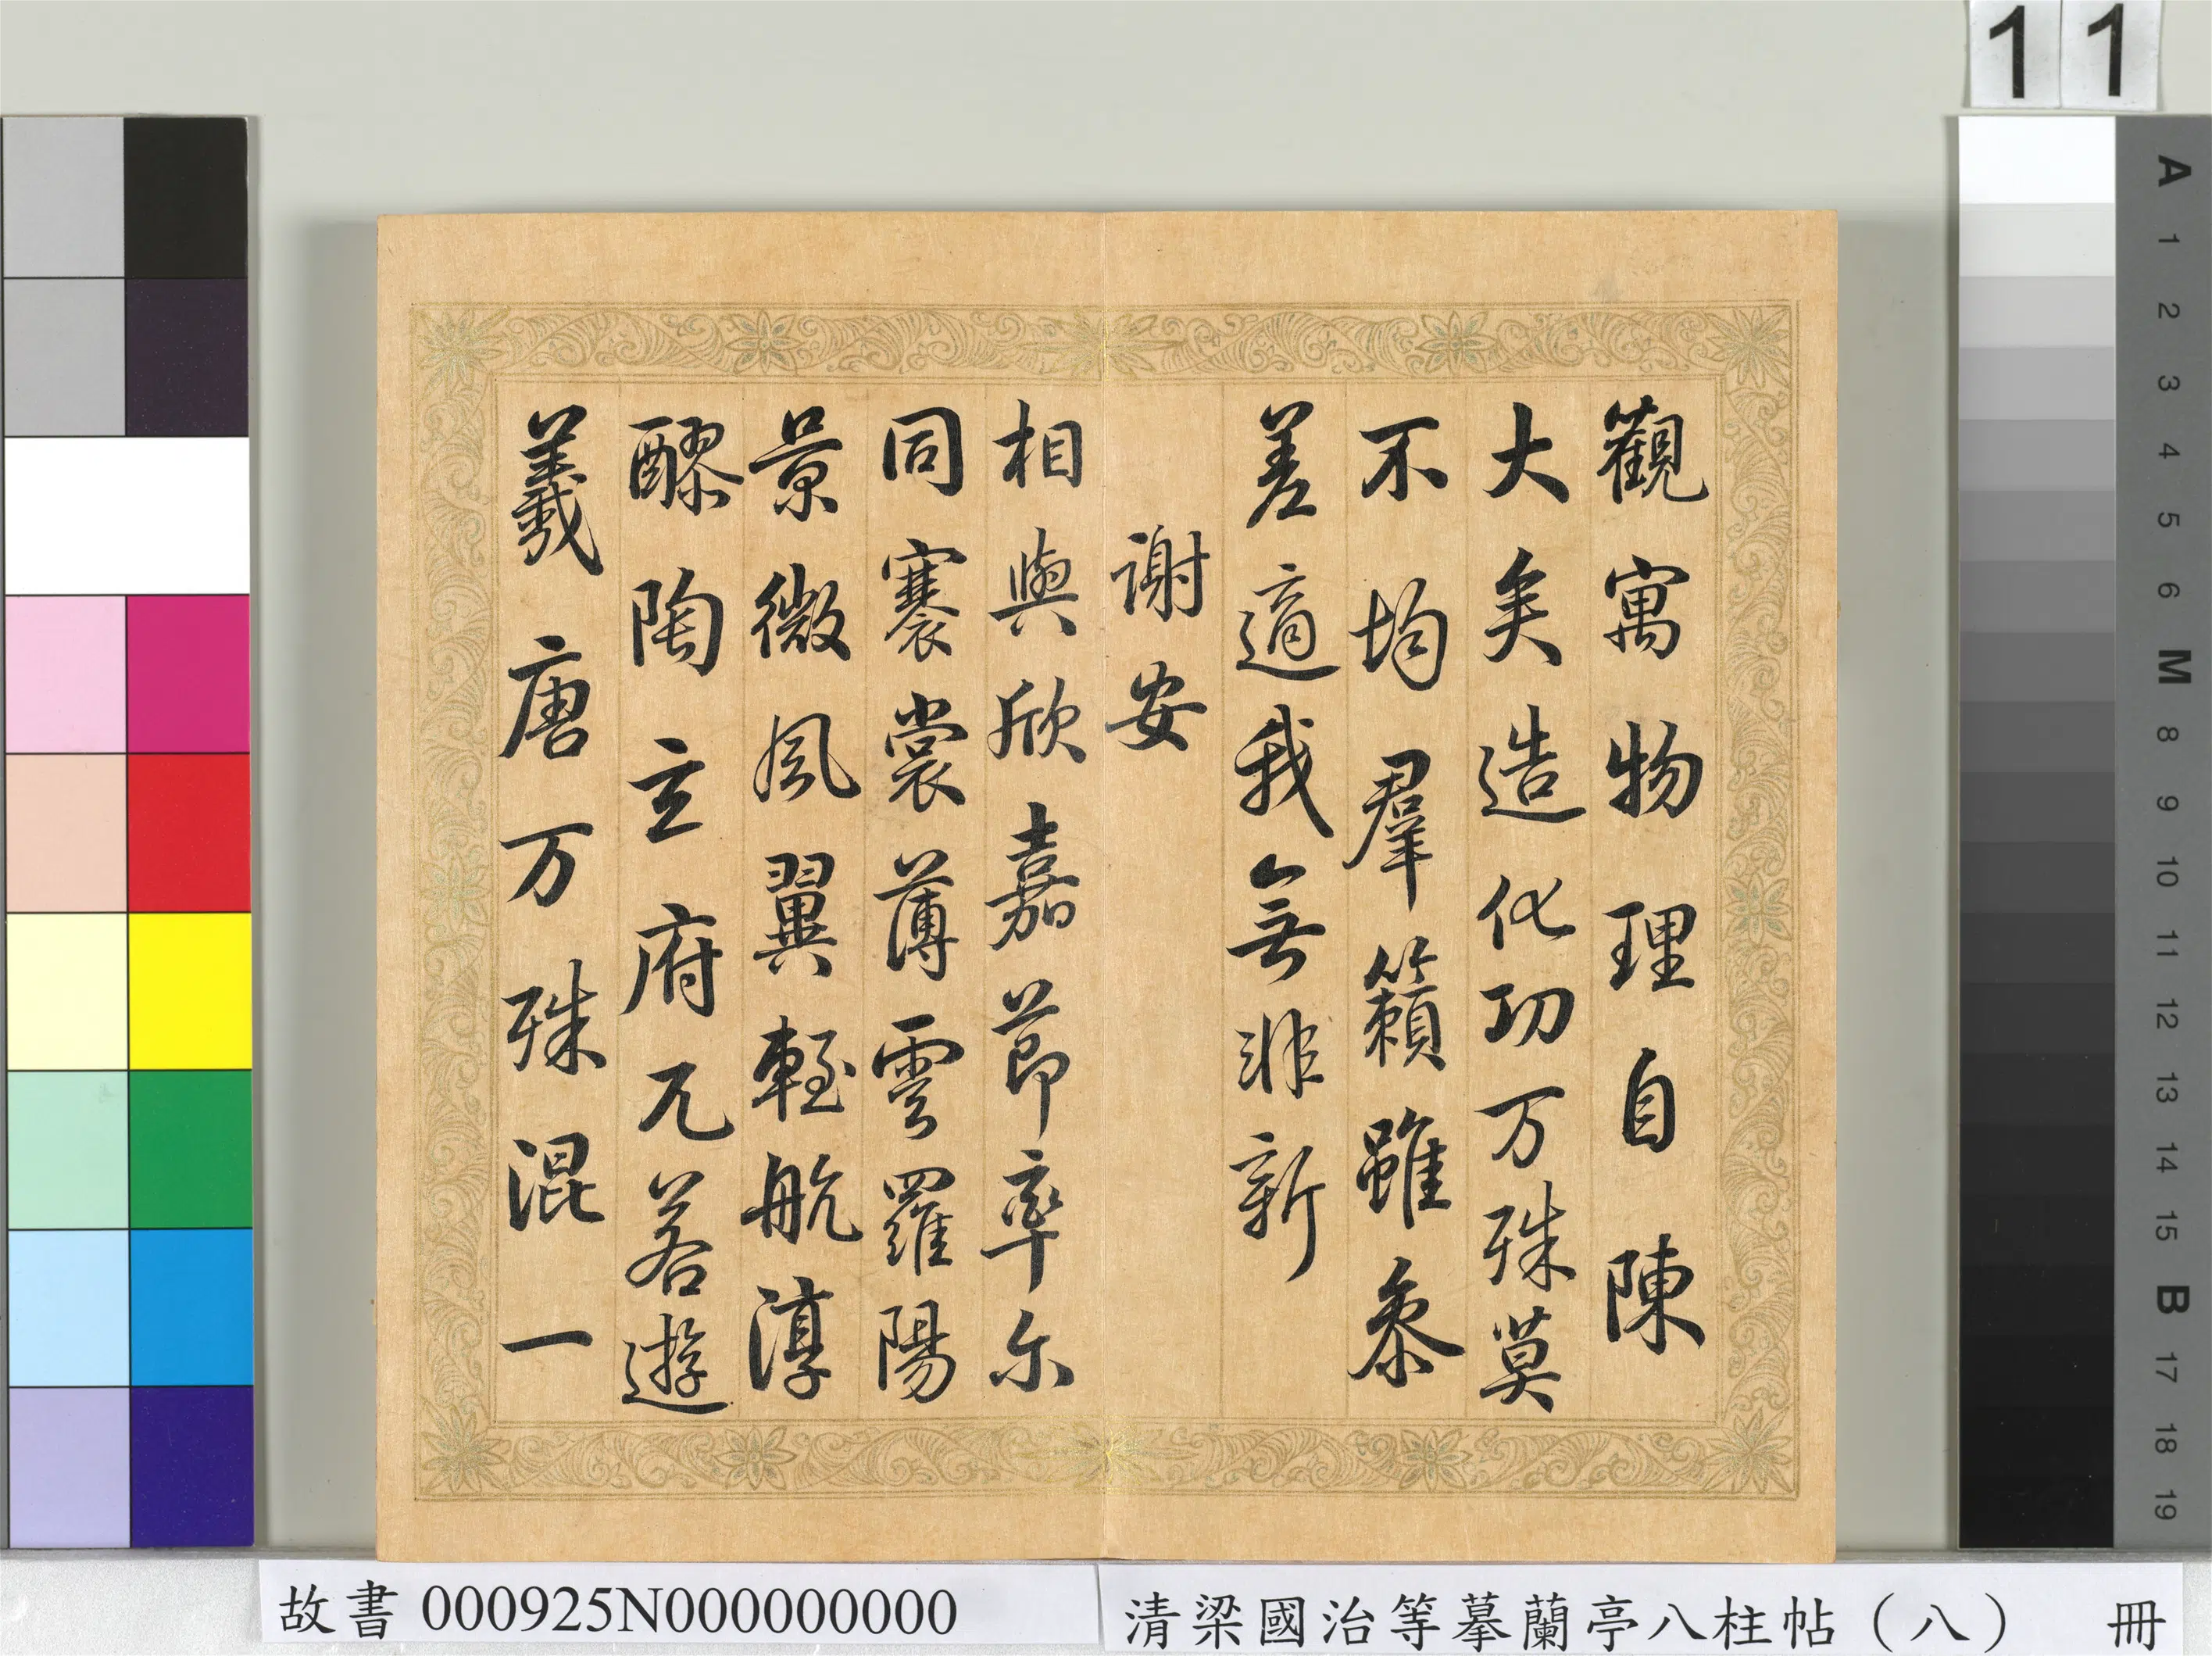 11
觀寓物理自陳
大矣造化功万殊莫
不均羣籟雖參
差適我無非新
謝安
相與欣嘉節率尔
同褰裳薄雲羅陽
景微風翼輕航淳
醪陶玄府兀若遊
羲唐万殊混一
A
1
2
3
4
5
6
M
8
9
10
11
12
13
14
15
B
17
18
19
故書 000925N000000000
清梁國治等摹蘭亭八柱帖（八） 冊